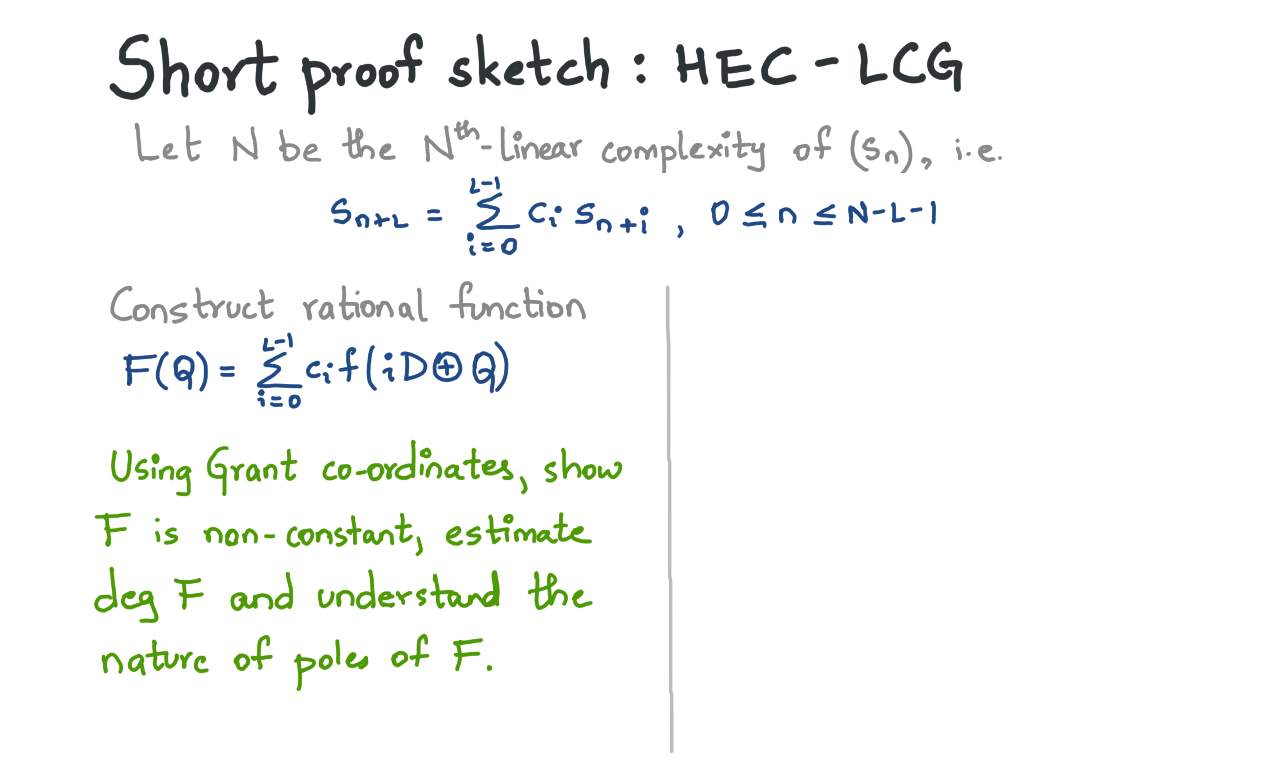 Short proof sketch : HEC - LCG
Let N be the Nᵗʰ-linear complexity of (sₙ), i.e.
sₙ₊L = ∑_{i=0}^{L-1} cᵢ sₙ₊ᵢ , 0 ≤ n ≤ N-L-1
Construct rational function
F(Q) = ∑_{i=0}^{L-1} cᵢ f(iD ⊕ Q)
Using Grant co-ordinates, show
F is non-constant, estimate
deg F and understand the
nature of poles of F.